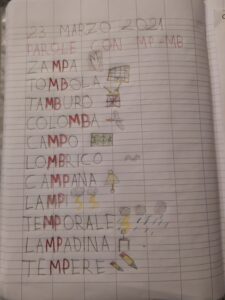 23 MARZO 2021
PAROLE CON MP-MB
ZAMPA
TOMBOLA
TAMBURO
COLOMBA
CAMPO
LOMBRICO
CAMPANA
LAMPI
TEMPORALE
LAMPADINA
TEMPERE